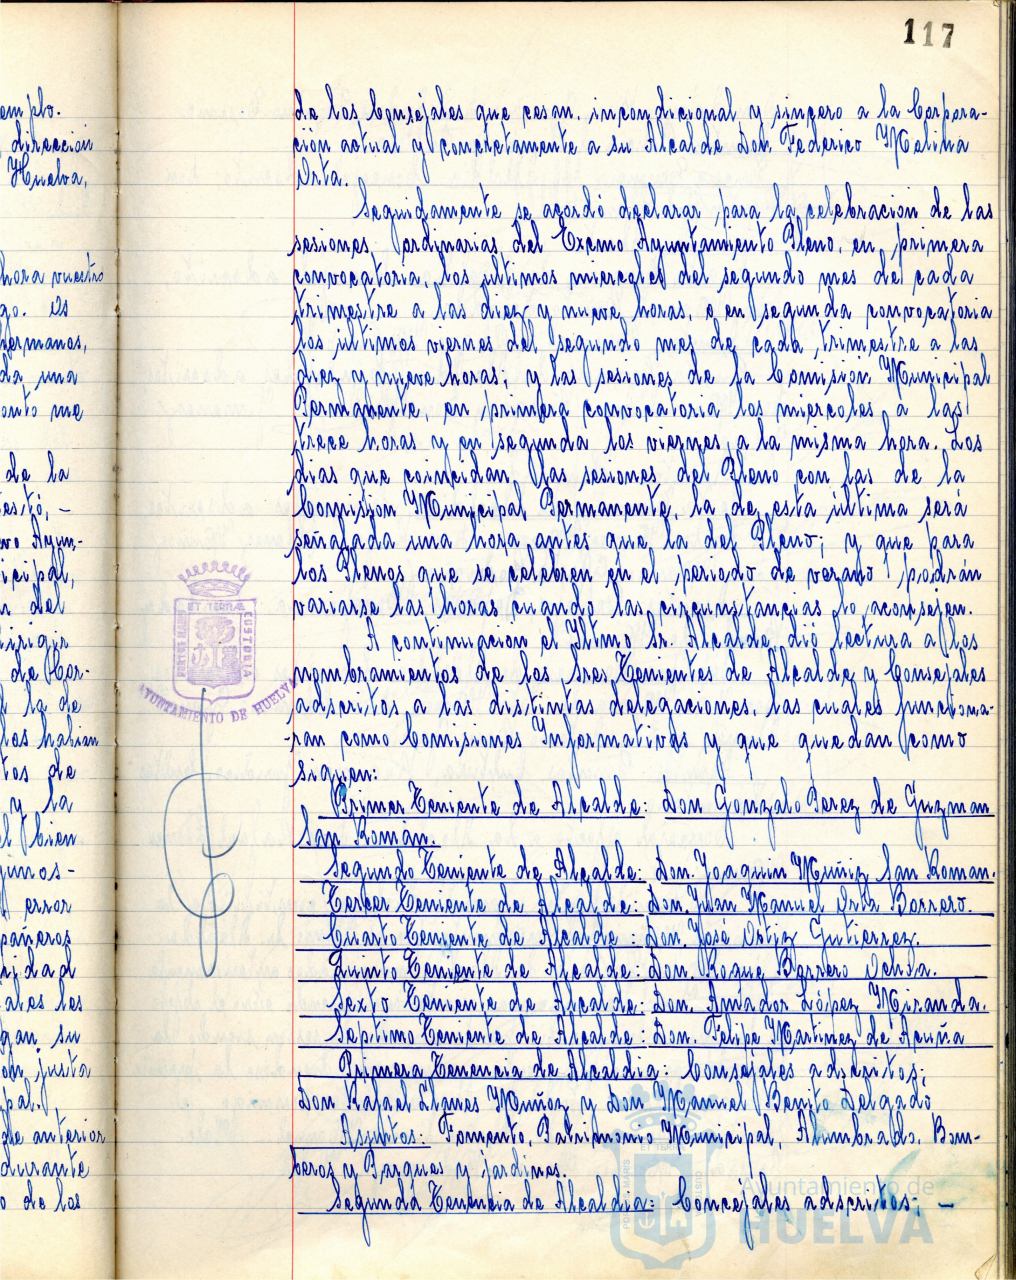 117
de los Consejales que cesan, incondicional y sincero a la Corpora-
ción actual y concretamente a su Alcalde Don Federico Molina
Orta.
Seguidamente se acordó declarar, para la celebración de las
sesiones ordinarias del Excmo Ayuntamiento Pleno, en primera
convocatoria, los ultimos miercoles del segundo mes de cada
trimestre a las diez y nueve horas, o en segunda convocatoria
los ultimos viernes del segundo mes de cada trimestre a las
diez y nueve horas; y las sesiones de la Comisión Municipal
Permanente, en primera convocatoria los miercoles a las
trece horas y en segunda los viernes, a la misma hora. Los
dias que coincidan las sesiones del Pleno con las de la
Comision Municipal Permanente, la de esta última será
señalada una hora antes que la del Pleno; y que para
los Plenos que se celebren en el periodo de verano podrán
variarse las horas cuando las circunstancias lo aconsejen.
A continuacion el Iltmo Sr. Alcalde dió lectura a los
nombramientos de los Sres Tenientes de Alcalde y Consejales
adscritos a las distintas delegaciones, las cuales funciona-
-ran como Comisiones Informativas y que quedan como
siguen:
Primer Teniente de Alcalde: Don Gonzalo Perez de Guzman
San Román.
Segundo Teniente de Alcalde: Don. Joaquin Muñiz San Roman.
Tercer Teniente de Alcalde: Don. Juan Manuel Orta Borrero.
Cuarto Teniente de Alcalde: Don. José Ortiz Gutierrez.
Quinto Teniente de Alcalde: Don. Roque Borrero
Sexto Teniente de Alcalde: Don. Amador López Miranda.
Septimo Teniente de Alcalde: Don. Felipe Martinez de Acuña
Primera Tenencia de Alcaldia: Consejales adscritos;
Don Rafael Llanes Muñoz y Don Manuel Benito Delgado
Asuntos: Fomento, Patrimonio Municipal, Alumbrado, Bom-
beros y Parques y jardines.
Segunda Tenencia de Alcaldia: Concejales adscritos; -
emplo.
direccion
Huelva,
hora vuestro
go. Es
hermanos,
da una
onto me
de la
testó, -
vo Ayun-
icipal,
n del
irigir
de Cor-
l la de
los habian
tos de
y la
el bien
gunos-
error
pañeros
ridad
ales les
gan su
on justa
pal.
de anterior
durante
o de los
PORTUS MARIS
ET TERRAE
CUSTODIA
AYUNTAMIENTO DE HUELVA
Ayuntamiento de
HUELVA